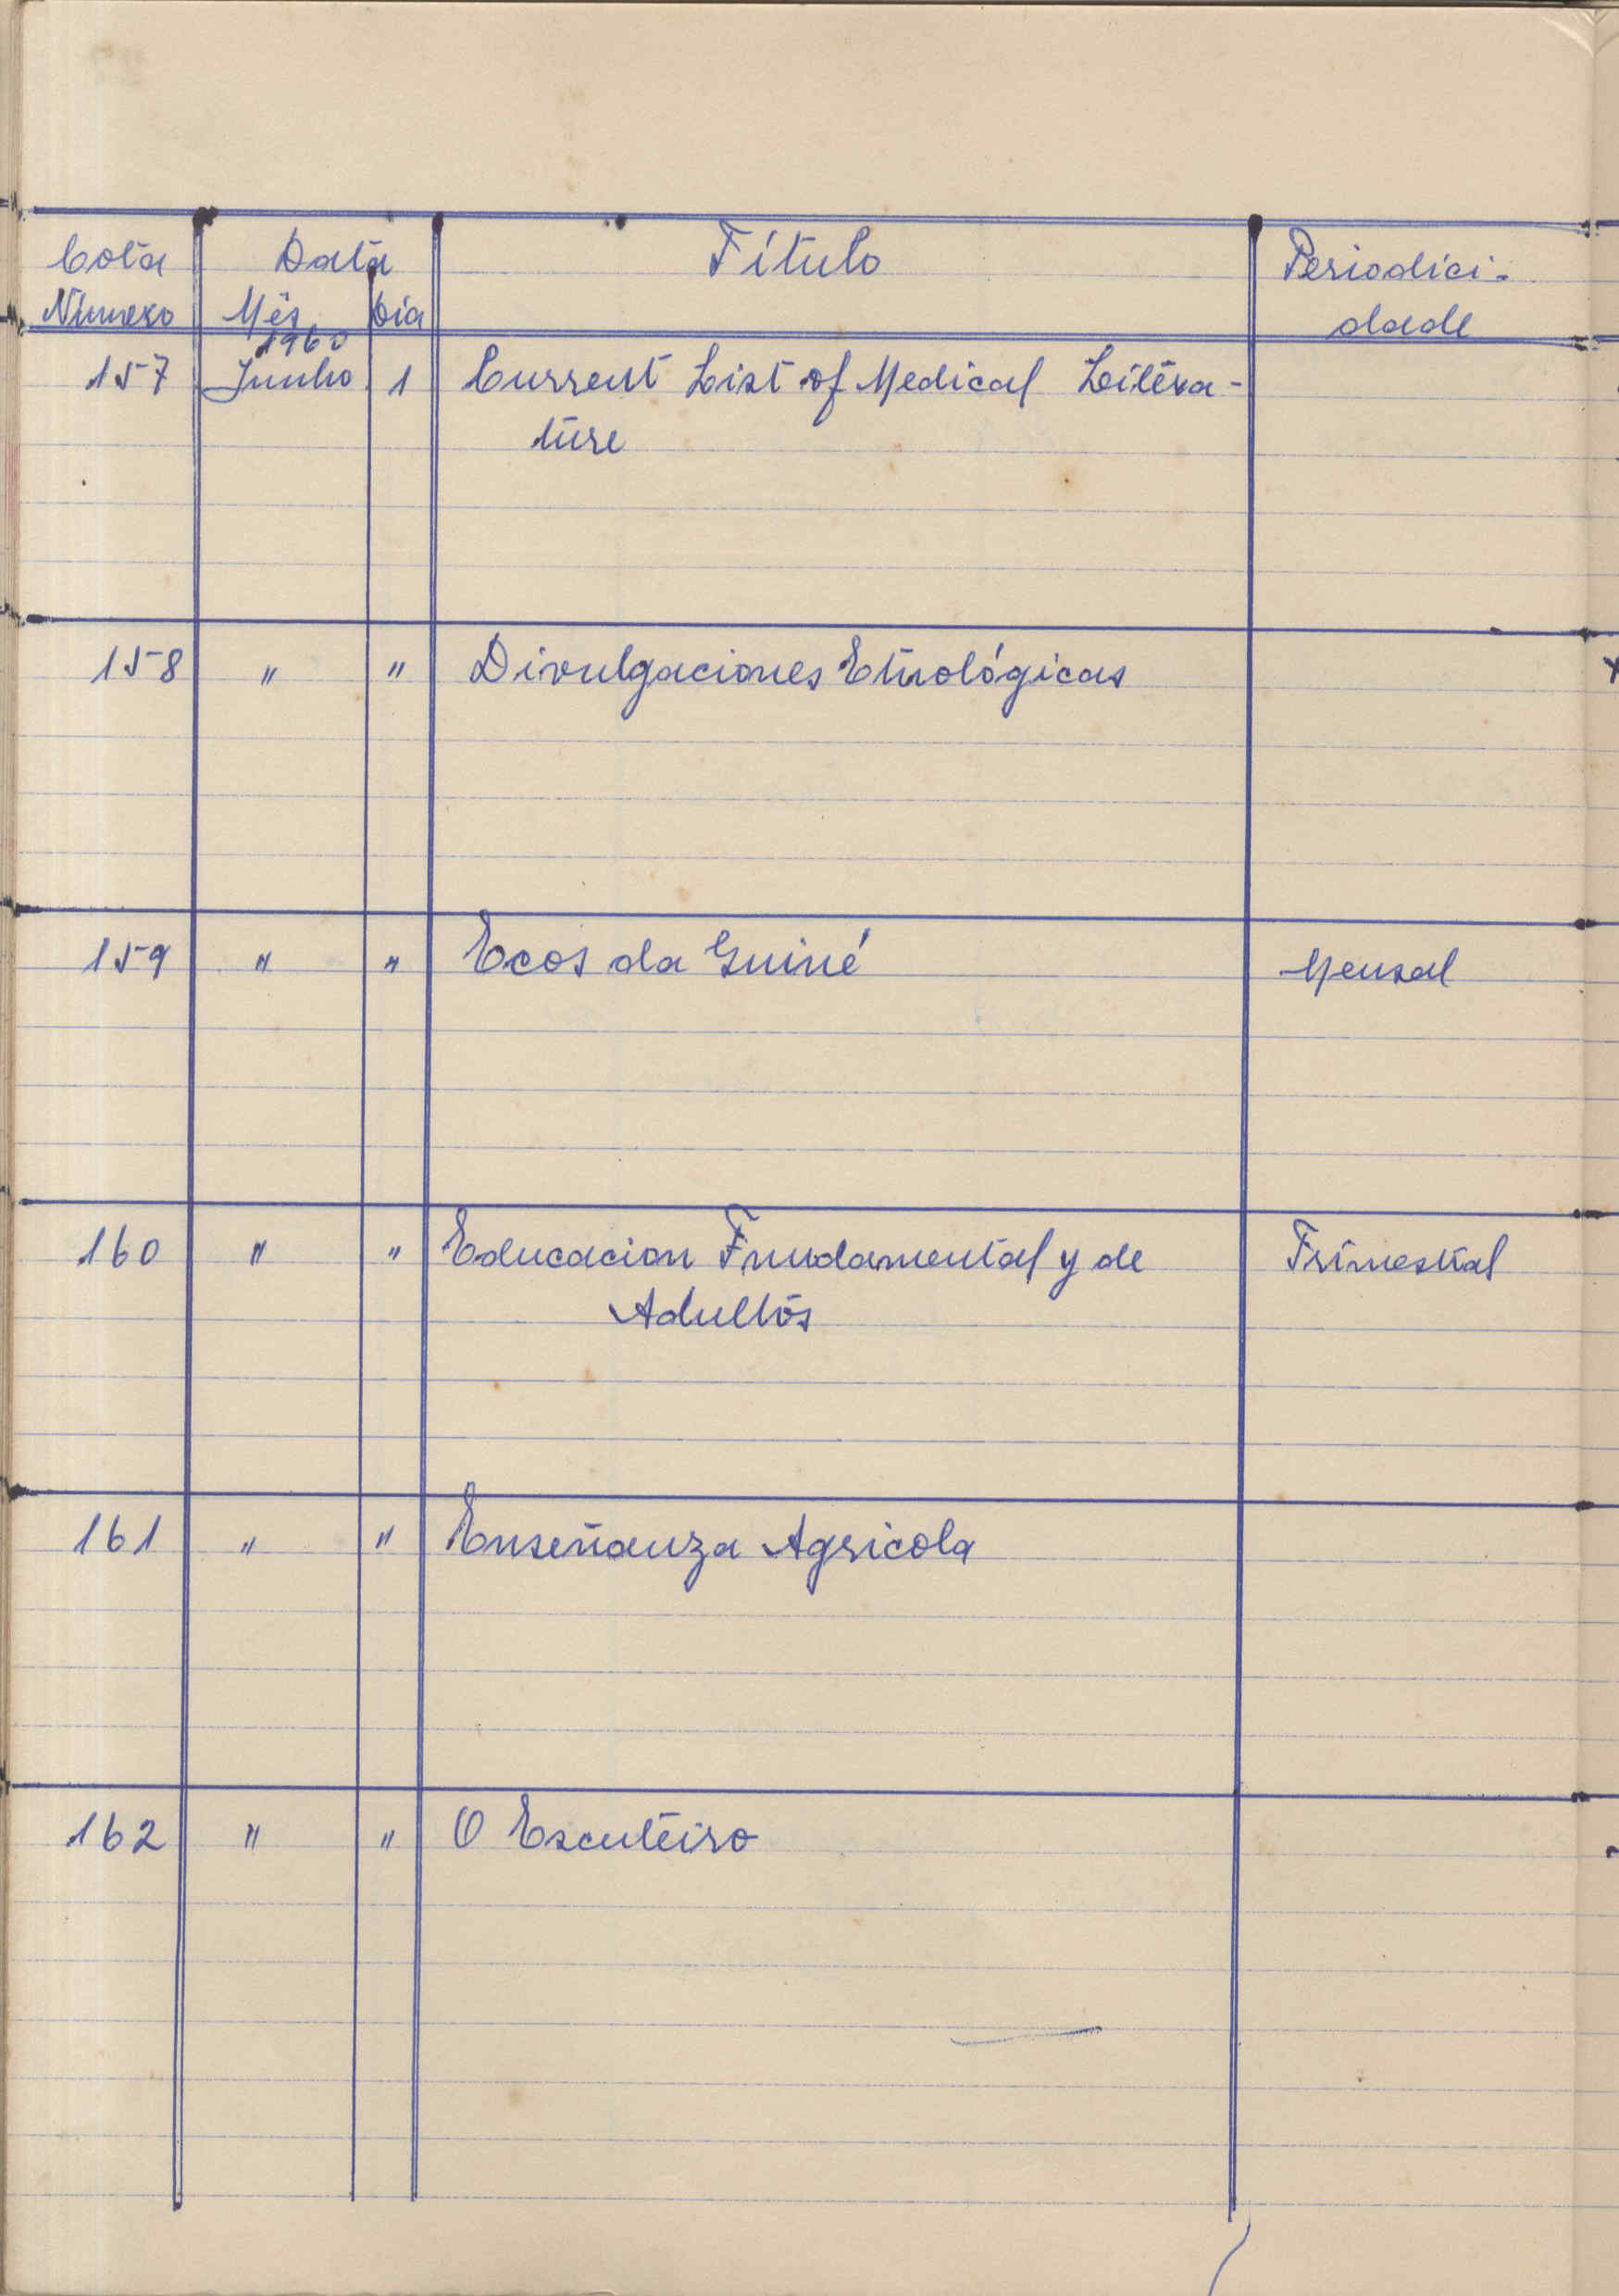 Cota Data Título Periodici-
Número Mês Dia dade
1960
157 Junho 1 Current List of Medical Litera-
ture
158 " " Divulgaciones Etnológicas
159 " " Ecos da Guiné Mensal
160 " " Educacion Fundamental y de Trimestral
Adultos
161 " " Enseñanza Agricola
162 " " O Escuteiro